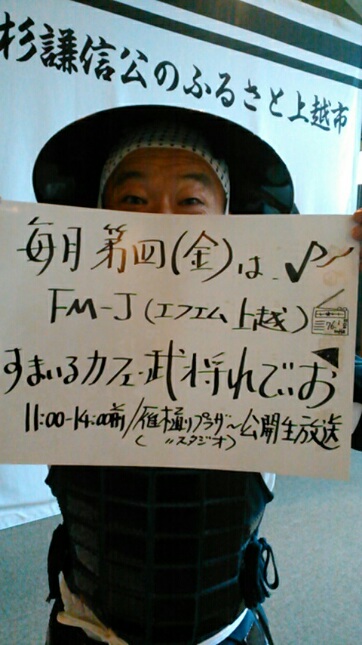 杉謙信公のふるさと上越市
毎月第四(金)は♪
FM-J(エフエム上越)
76.1
すまいるカフェ・武将れでぃお
11:00-14:00前/雁木通りプラザ〜公開生放送
(〃スタジオ)